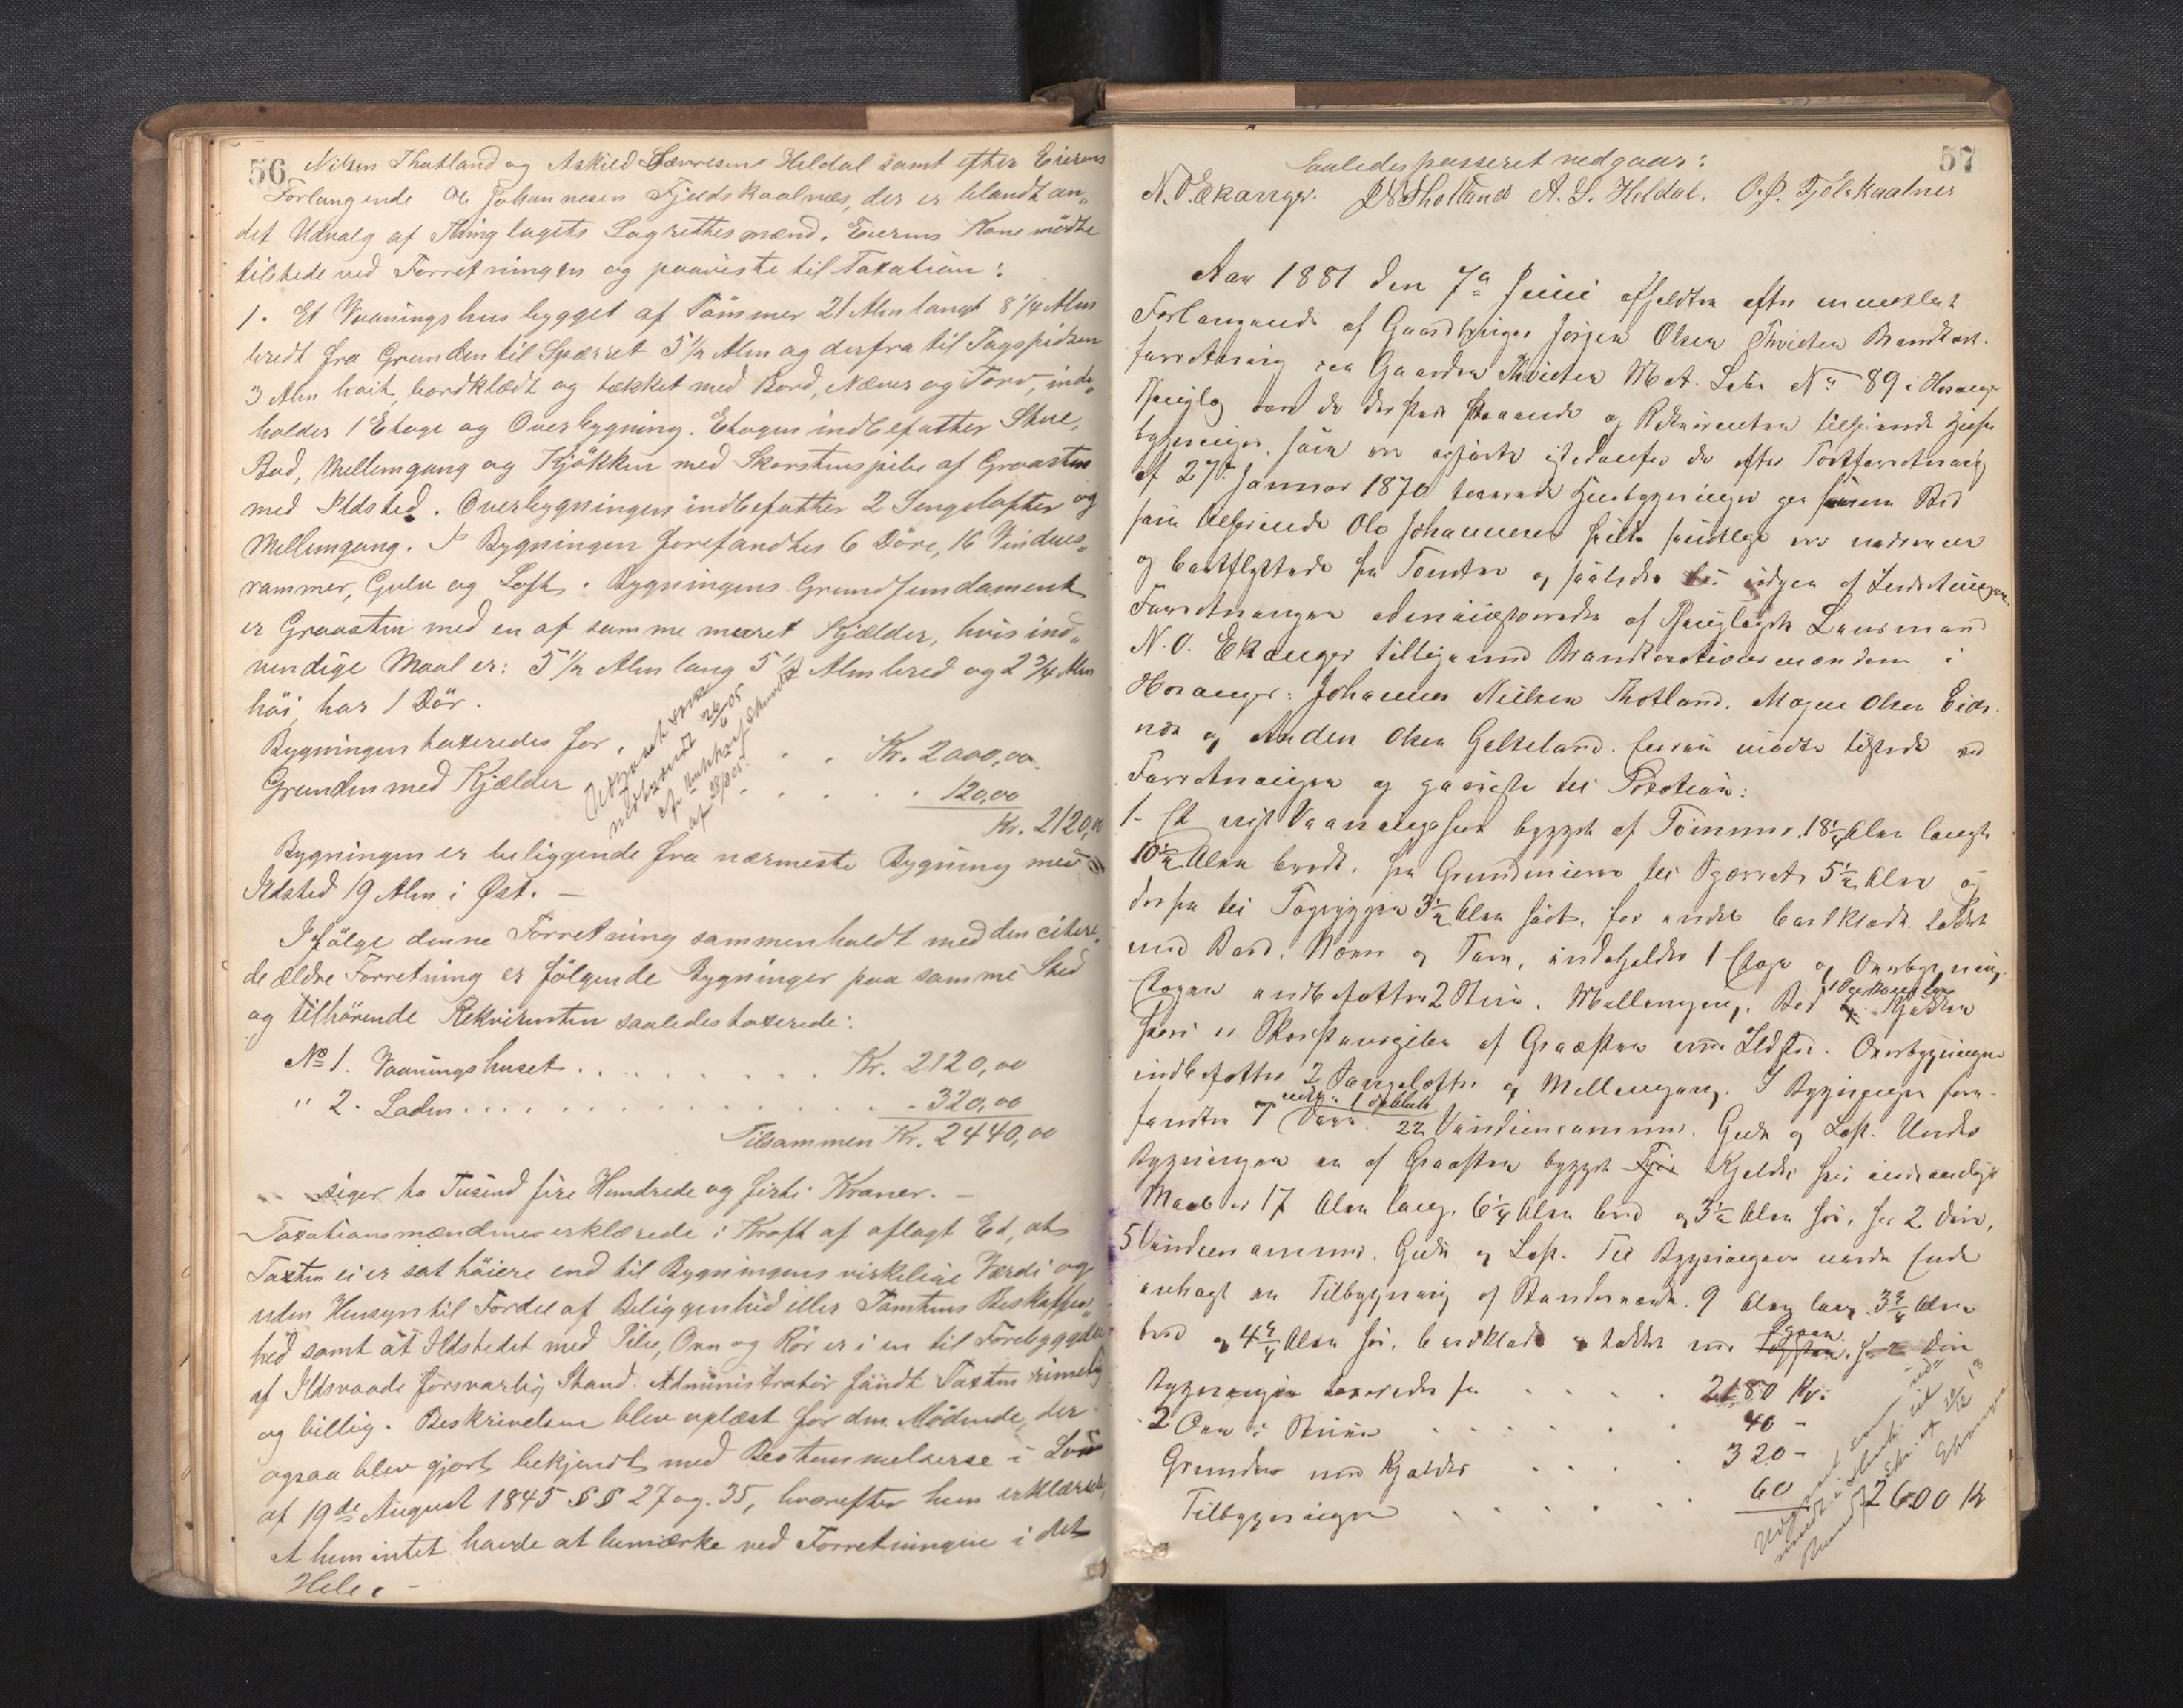 56
Nilsen Thotland og Askild Larresens Heldal samt efter Eierens
Forlangende Ole Johannesen Fjeldskaalnæs, der er blandt an„
det Udvalg af Thinglagets Lagrettesmænd. Eierens Kone mödte
tilstede ved Forretningen og paaviste til Taxation:
1. Et Vaaningshus bygget af Tömmer 21 Alen langt 8 1/4 Alen
bredt fra Grunden til Spærret 5 1/2 Alen og derfra til Tagspidsen
3 Alen höit, bordklædt og tækket med Bord, Næver og Torv, inde„
holder 1 Etage og Overbygning. Etagen indbefatter Stue,
Bod, Mellemgang og Kjökken med Skorstenspibe af Graasten
med Ildsted. Overbygningen indbefatter 2 Sengelofter og
Mellemgang. I Bygningen forefandtes 6 Döre, 16 Vindues„
rammer, Gulv og Loft. Bygningens Grundfundament
er Graasten med en af samme muret Kjælder, hvis ind„
vendige Maal er: 5 1/2 Alen lang 5 1/2 Alen bred og 2 3/4 Alen
höi, har 1 Dör.
Bygningen taxeredes for . . . Kr. 2000,00.
Grunden med Kjælder . . . . . 120,00
Kr. 2120,00
Udgaaet som
nedbrændt 26/6 05
af 28/8 05.
Bygningen er beliggende fra nærmeste Bygning med
Ildsted 19 Alen i Øst. —
Ifölge denne Forretning sammenholdt med den citere„
de ældre Forretning er fölgende Bygninger paa samme Sted
og tilhörende Rekvirenten saaledes taxerede:
No 1. Vaaningshuset . . . . . . . . . Kr. 2120,00
" 2. Laden . . . . . . . . . . . . . . - 320,00
Tilsammen Kr. 2440,00
siger to Tusind fire Hundrede og firti Kroner. —
Taxationsmændene erklærede i Kraft af aflagt Ed, at
Taxten ei er sat höiere end til Bygningens virkelige Værdi og
uden Hensyn til Fordel af Beliggenhed eller Tomtens Beskaffen„
hed samt at Ildstedet med Pibe, Ovn og Rör er i en til Forebyggelse
af Ildsvaade forsvarlig Stand. Administrator fandt Taxten rimelig
og billig. Beskrivelsen blev oplæst for den Mödende, der
ogsaa blev gjort bekjendt med Bestemmelserne i Lov
af 19de August 1845 §§ 27 og 35, hvorefter hun erklærede,
at hun intet havde at bemærke ved Forretningen i det
Hele. —
57
Saaledes passeret vedgaar:
N. O. Ekanger. J N Thotland A. L. Heldal. O. J. Fjelskaalnes
Aar 1881 den 7de Juni afholdtes efter mundtligt
Forlangende af Gaardbruger Jörgen Olsen Tveiten Brandtaxt.
forretning paa Gaarden Tveiten Mat. Løbe No 89 i Hosanger
Thinglag over de der staaende og Rekvirenten tilhörende Huse
bygninger, som er opförte istedenfor de efter Taxtforretning
af 27de Januar 1870 taxerede Husbygninger paa samme Sted
som tilhörende Ole Johannesen hvilke samtlige er nedrevne
og bortflyttede fra Tomten og saaledes udgaa af Indretningen.
Forretningen administreredes af Thinglagets Lensmand
N. O. Ekanger tilligemed Brandtaxationsmændene i
Hosanger: Johannes Nielsen Thotland, Mogne Olsen Eids-
nes og Anders Olsen Galteland. Eieren mödte tilstede ved
Forretningen og paaviste til Taxation:
1- Et nyt Vaaningshus bygget af Tömmer, 18 1/4 Alen langt
10 1/2 Alen bredt, fra Grundmuren til Spærret 5 1/2 Alen og
derfra til Tagryggen 3 1/2 Alen höit, bordklædt, tækket
med Bord, Næver og Torv, indeholder 1 Etage og Overbygning.
Etagen indbefatter 2 Stuer, Mellemgang, Bod og Kjökken
hvori er Skorstenspibe af Graasten med Ildsted. Overbygningen
indbefatter 2 Sengelofter og Mellemgang. I Bygningen fore-
fandtes 9 Döre, 22 Vinduesrammer, Gulv og Loft. Under
Bygningen en af Graasten bygget Kjelder hvis indvendige
Maal er 17 Alen lang, 6 1/4 Alen bred og 3 1/2 Alen höi, har 2 Döre,
5 Vinduesrammer, Gulv og Loft. Til Bygningens nordre Ende
anbragt en Tilbygning af Standerværk, 9 Alen lang, 3 3/4 Alen
bred og 4 3/4 Alen höi, bordklædt og tækket med Spaan, har 2 Döre
Bygningen taxeredes for . . . . . 2180 Kr.
2 Ovne i Stuerne . . . . . . 40 -
Grunden med Kjelder . . . . . 320 -
Tilbygningen . . . . . . 60
2600 Kr